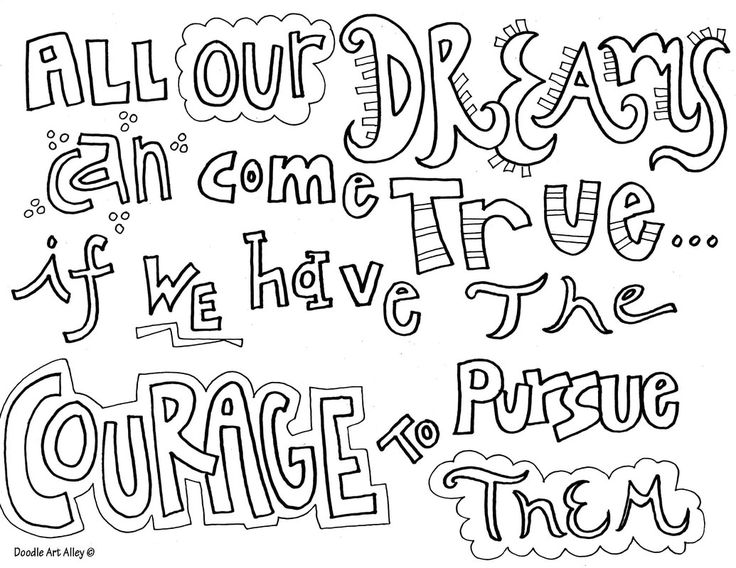 ALL OUR DREAMS
can come True...
if WE have The
COURAGE TO Pursue
THEM
Doodle Art Alley ©